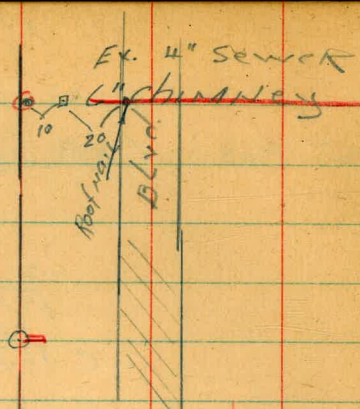 Ex. 4" Sewer
6" Chimney
10
20
Roof nail
Blvd.